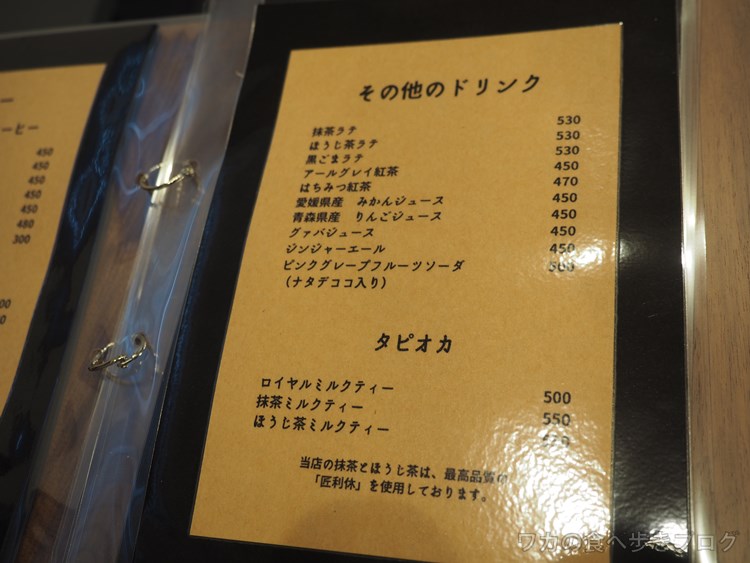 ーヒー
450
450
450
450
450
480
300
その他のドリンク
抹茶ラテ 530
ほうじ茶ラテ 530
黒ごまラテ 530
アールグレイ紅茶 450
はちみつ紅茶 470
愛媛県産 みかんジュース 450
青森県産 りんごジュース 450
グァバジュース 450
ジンジャーエール 450
ピンクグレープフルーツソーダ
(ナタデココ入り)
タピオカ
ロイヤルミルクティー 500
抹茶ミルクティー 550
ほうじ茶ミルクティー
当店の抹茶とほうじ茶は、最高品質の
「匠利休」を使用しております。
ワカの食べ歩きブログ